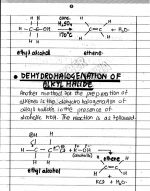 H H conc.
H-C-C-OH H₂SO₄ C = C + H₂O.
H H 170°C H H
ethyl alcohol ethene
DEHYDROHALOGENATION OF
ALKYL HALIDE
Another method for the preparation of
alkenes is the dehydrohalogenation of
alkyl halide in the presence of
alcoholic KOH. The reaction is as followed:
H
H-C-C-H + K-OH
(alcoholic)
ethene
ethyl alcohol
+ H₂O.